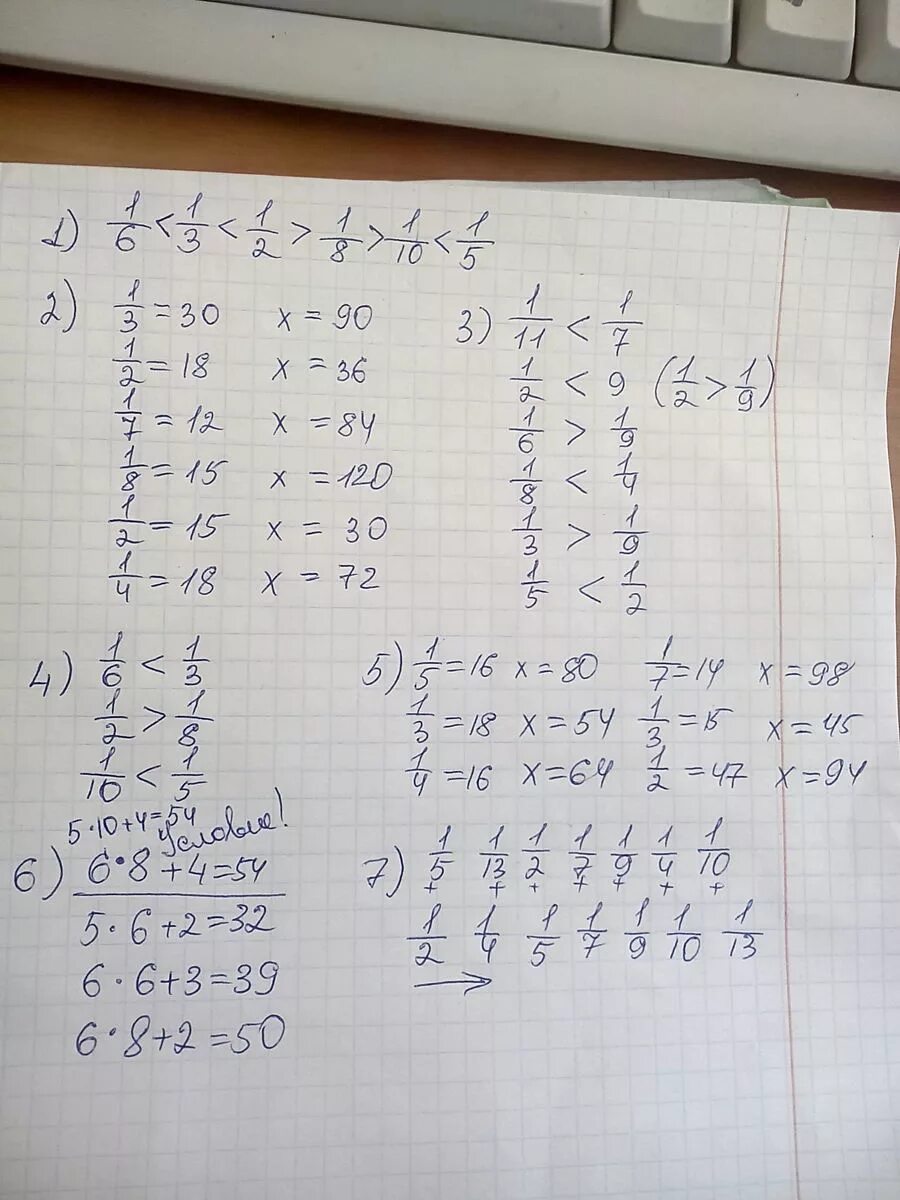 1) 1/6 < 1/3 < 1/2 > 1/8 > 1/10 < 1/5
2) 1/3 = 30 x = 90
1/2 = 18 x = 36
1/7 = 12 x = 84
1/8 = 15 x = 120
1/2 = 15 x = 30
1/4 = 18 x = 72
3) 1/11 < 1/7
1/2 < 9 (1/2 > 1/9)
1/6 > 1/9
1/8 < 1/4
1/3 > 1/9
1/5 < 1/2
4) 1/6 < 1/3
1/2 > 1/8
1/10 < 1/5
5) 1/5 = 16 x = 80 1/7 = 14 x = 98
1/3 = 18 x = 54 1/3 = 15 x = 45
1/4 = 16 x = 64 1/2 = 47 x = 94
5·10+4=54
Условие!
6) 6·8+4=54
5·6+2=32
6·6+3=39
6·8+2=50
7) 1/5 1/13 1/2 1/7 1/9 1/4 1/10
+ + + + + + +
1/2 1/4 1/5 1/7 1/9 1/10 1/13
→